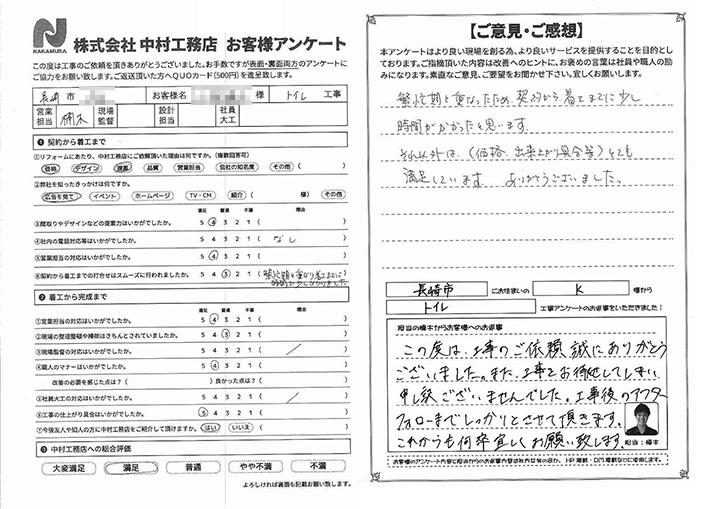 NAKAMURA
株式会社 中村工務店 お客様アンケート
この度は工事のご依頼を頂きありがとうございました。お手数ですが表面・裏面両方のアンケートに
ご協力をお願い致します。ご返送頂いた方へQUOカード(500円)を進呈致します。
長崎 市 お客様名 様 トイレ 工事
営業担当 楠木 現場監督 設計担当 社員大工
❶ 契約から着工まで
①リフォームにあたり、中村工務店にご依頼頂いた理由は何ですか。(複数回答可)
価格 デザイン 提案 品質 営業担当 会社の知名度 その他( )
②弊社を知ったきっかけは何ですか。
広告を見て イベント ホームページ TV・CM 紹介( 様) その他
満足 普通 不満 理由
③間取りやデザインなどの提案力はいかがでしたか。 5 4 3 2 1 ( )
④社内の電話対応等はいかがでしたか。 5 4 3 2 1 ( なし )
⑤営業担当の対応はいかがでしたか。 5 4 3 2 1 ( )
⑥契約から着工までの打合せはスムーズに行われましたか。 5 4 3 2 1 (繁忙期と重なり着工までに
時間が少しかかりました)
❷ 着工から完成まで
満足 普通 不満 理由
①営業担当の対応はいかがでしたか。 5 4 3 2 1 ( )
②現場の整理整頓や掃除はきちんとされていましたか。 5 4 3 2 1 ( )
③現場監督の対応はいかがでしたか。 5 4 3 2 1 ( )
④職人のマナーはいかがでしたか。 5 4 3 2 1 ( )
改善の必要を感じた点は?( )良かった点は?( )
⑤社員大工の対応はいかがでしたか。 5 4 3 2 1 ( )
⑥工事の仕上がり具合はいかがでしたか。 5 4 3 2 1 ( )
⑦今後友人や知人の方に中村工務店をご紹介して頂けますか。 はい いいえ ( )
❸ 中村工務店への総合評価
大変満足 満足 普通 やや不満 不満
よろしければ裏面も記載お願い致します。
【ご意見・ご感想】
本アンケートはより良い現場を創る為、より良いサービスを提供することを目的と
しております。ご指摘頂いた内容は改善へのヒントに、お褒めの言葉は社員や職人の励
みになります。素直なご意見、ご要望をお聞かせ下さい。宜しくお願いします。
繁忙期と重なったため、契約から着工までに少し
時間がかかったと思います。
それ以外は、(価格、出来上がり具合等)とても
満足しています。ありがとうございました。
長崎市 にお住まいの K 様から
トイレ 工事アンケートのお返事をいただきました!
担当の楠本からお客様へのお返事
この度は、工事のご依頼、誠にありがとう
ございました。また、工事をお待たせしてしまい、
申し訳ございませんでした。工事後のアフター
フォローまでしっかりとさせて頂きます。
これからも何卒宜しくお願い致します。
担当:楠本